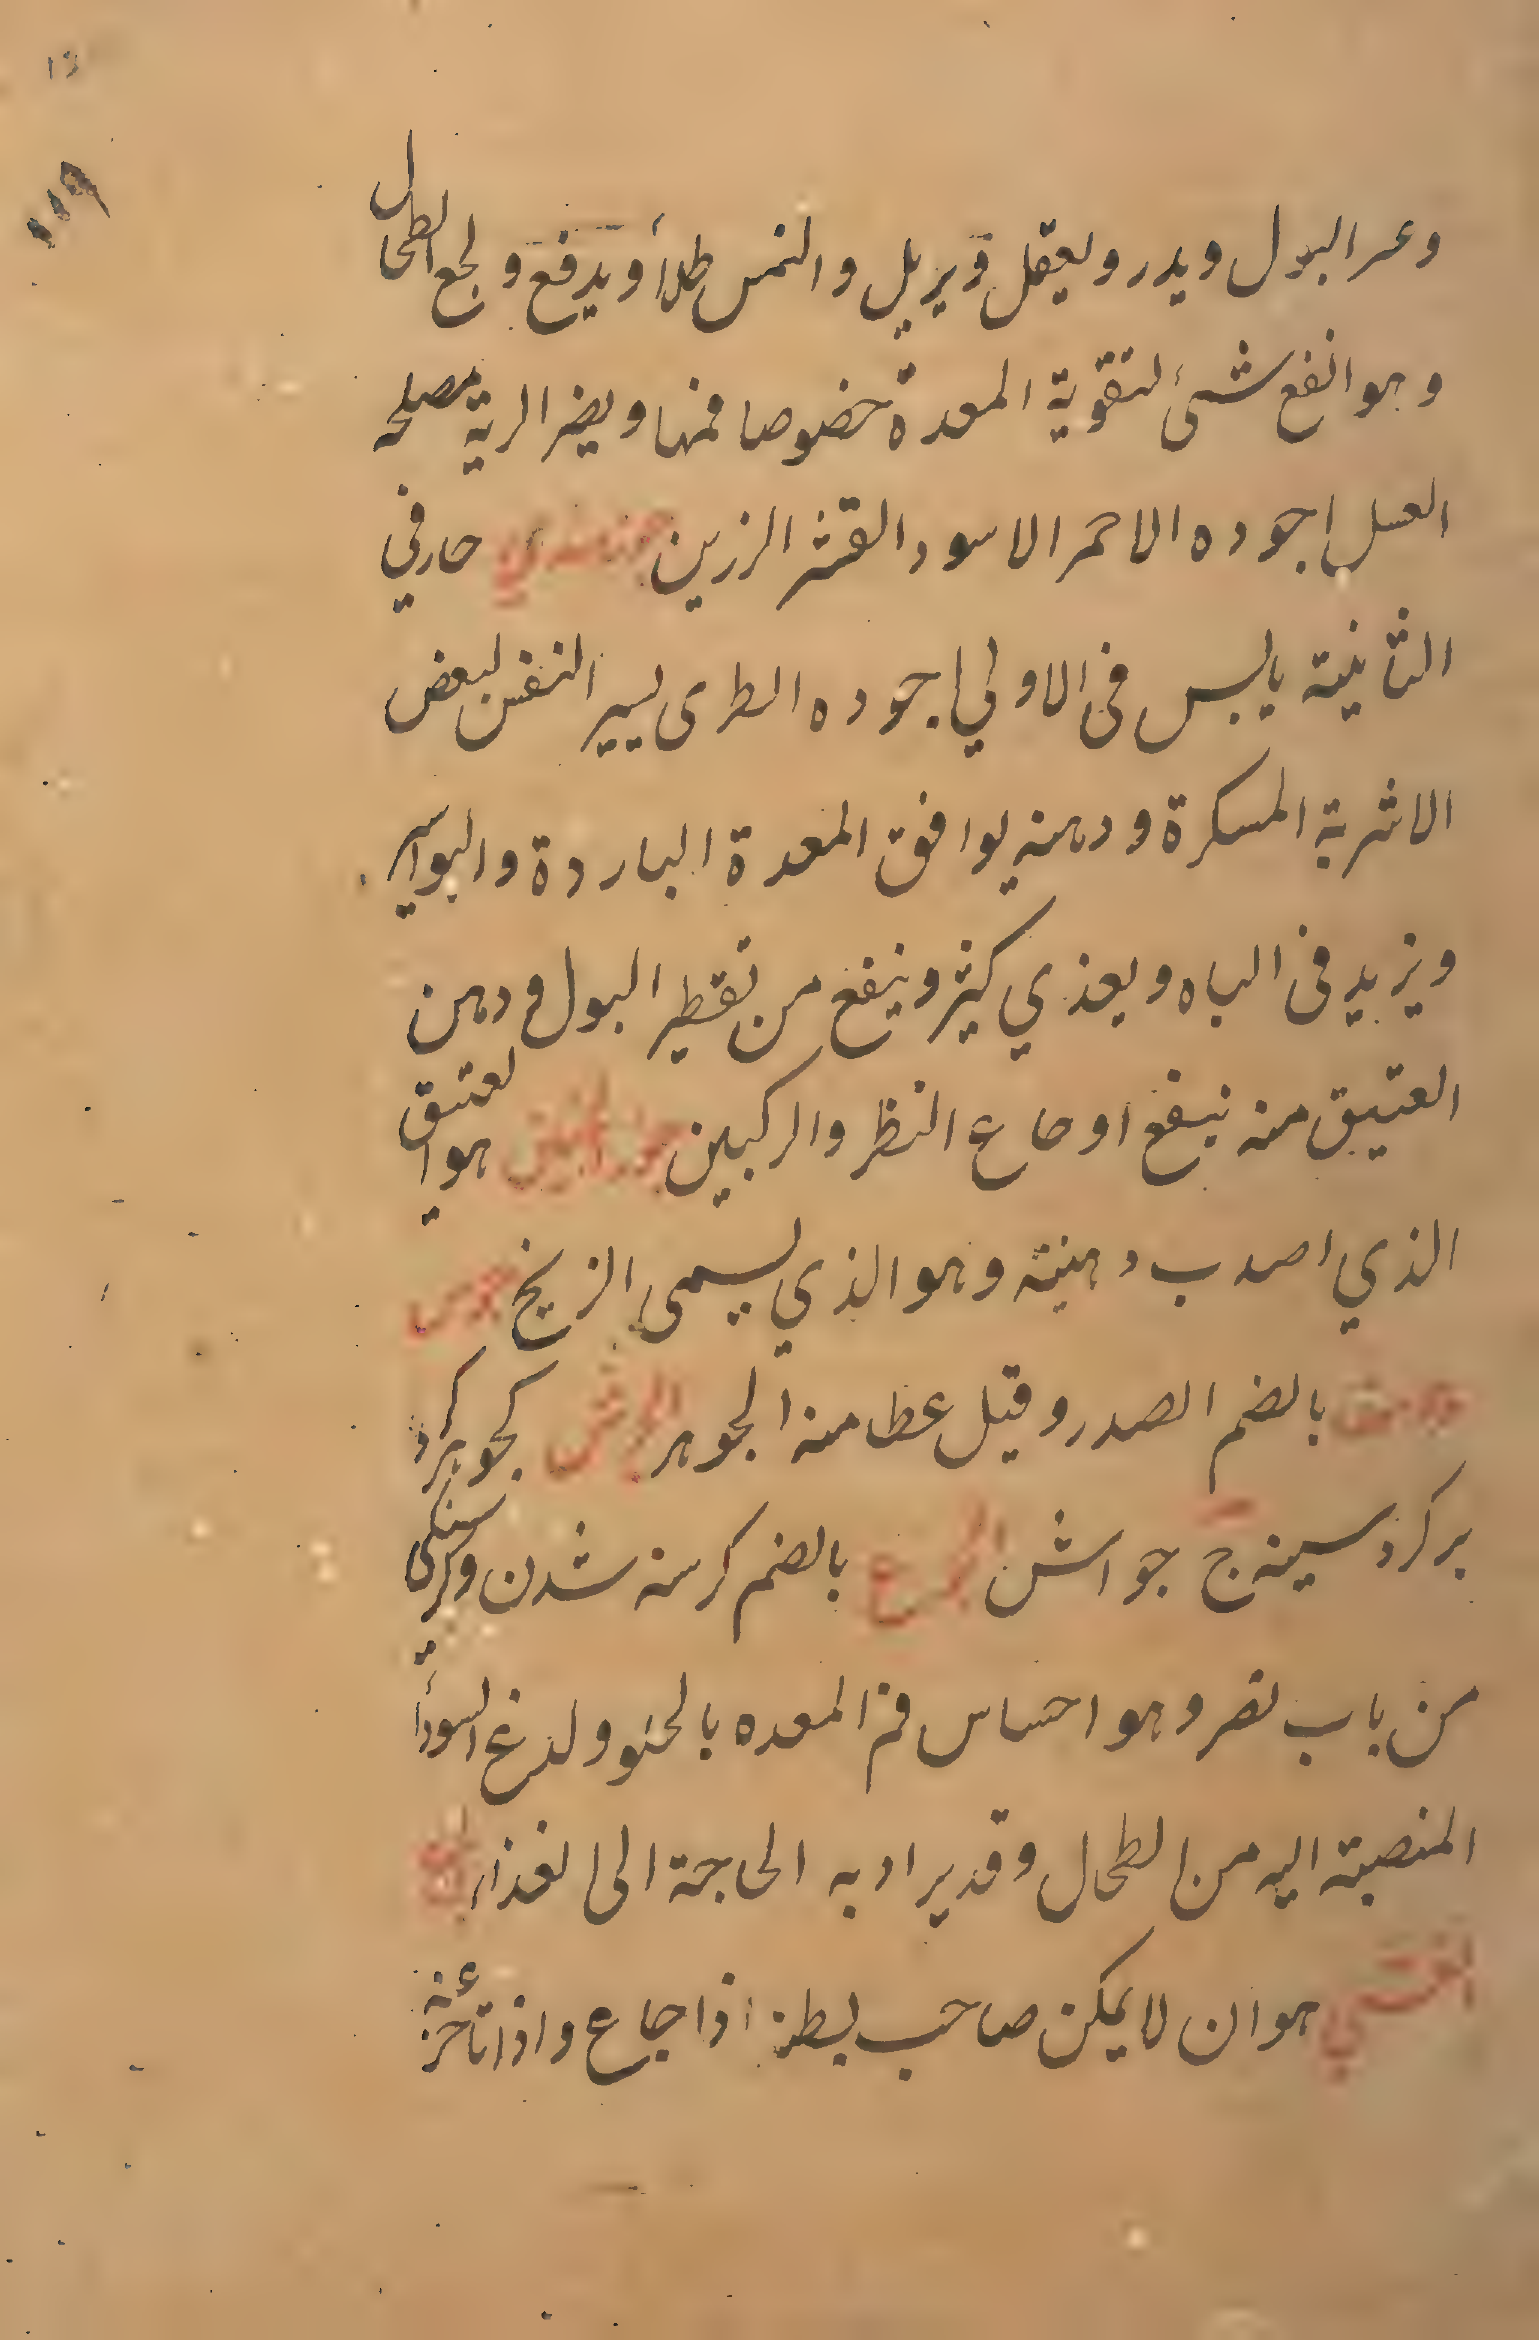 ١١٩
وعسر البول ويدر ويعقل ويزيل والنمس طلاأ ويدفع وجع الطحال
وهو انفع شئ لتقوية المعدة خصوصا فمها ويضر الرية مصلحه
العسل اجوده الاحمر الاسود القشر الرزين حار في
الثانية يابس فى الاولي اجوده الطرى يسير النفس لبعض
الاشربة المسكرة ودهنه يوافق المعدة الباردة والبواسير
ويزيد فى الباه ويغذي كثيرا وينفع من تقطير البول ودهن
العتيق منه ينفع اوجاع الظهر والركبين هو العتيق
الذي دهنيته وهو الذي يسمى الزنخ جوس
بالضم الصدر وقيل عظامه الجوهر الجوش كجوهر كرد
بر كرد سينه ج جواش الجوع بالضم كرسنه شدن وكرسنكى
من باب نصر وهو احساس فم المعده بالخلو ولدغ السودأ
المنصبة اليه من الطحال وقد يراد به الحاجة الى الغذاء
الغشي هو ان لا يمكن صاحبه بطنه اذا جاع واذا تأخر عنه